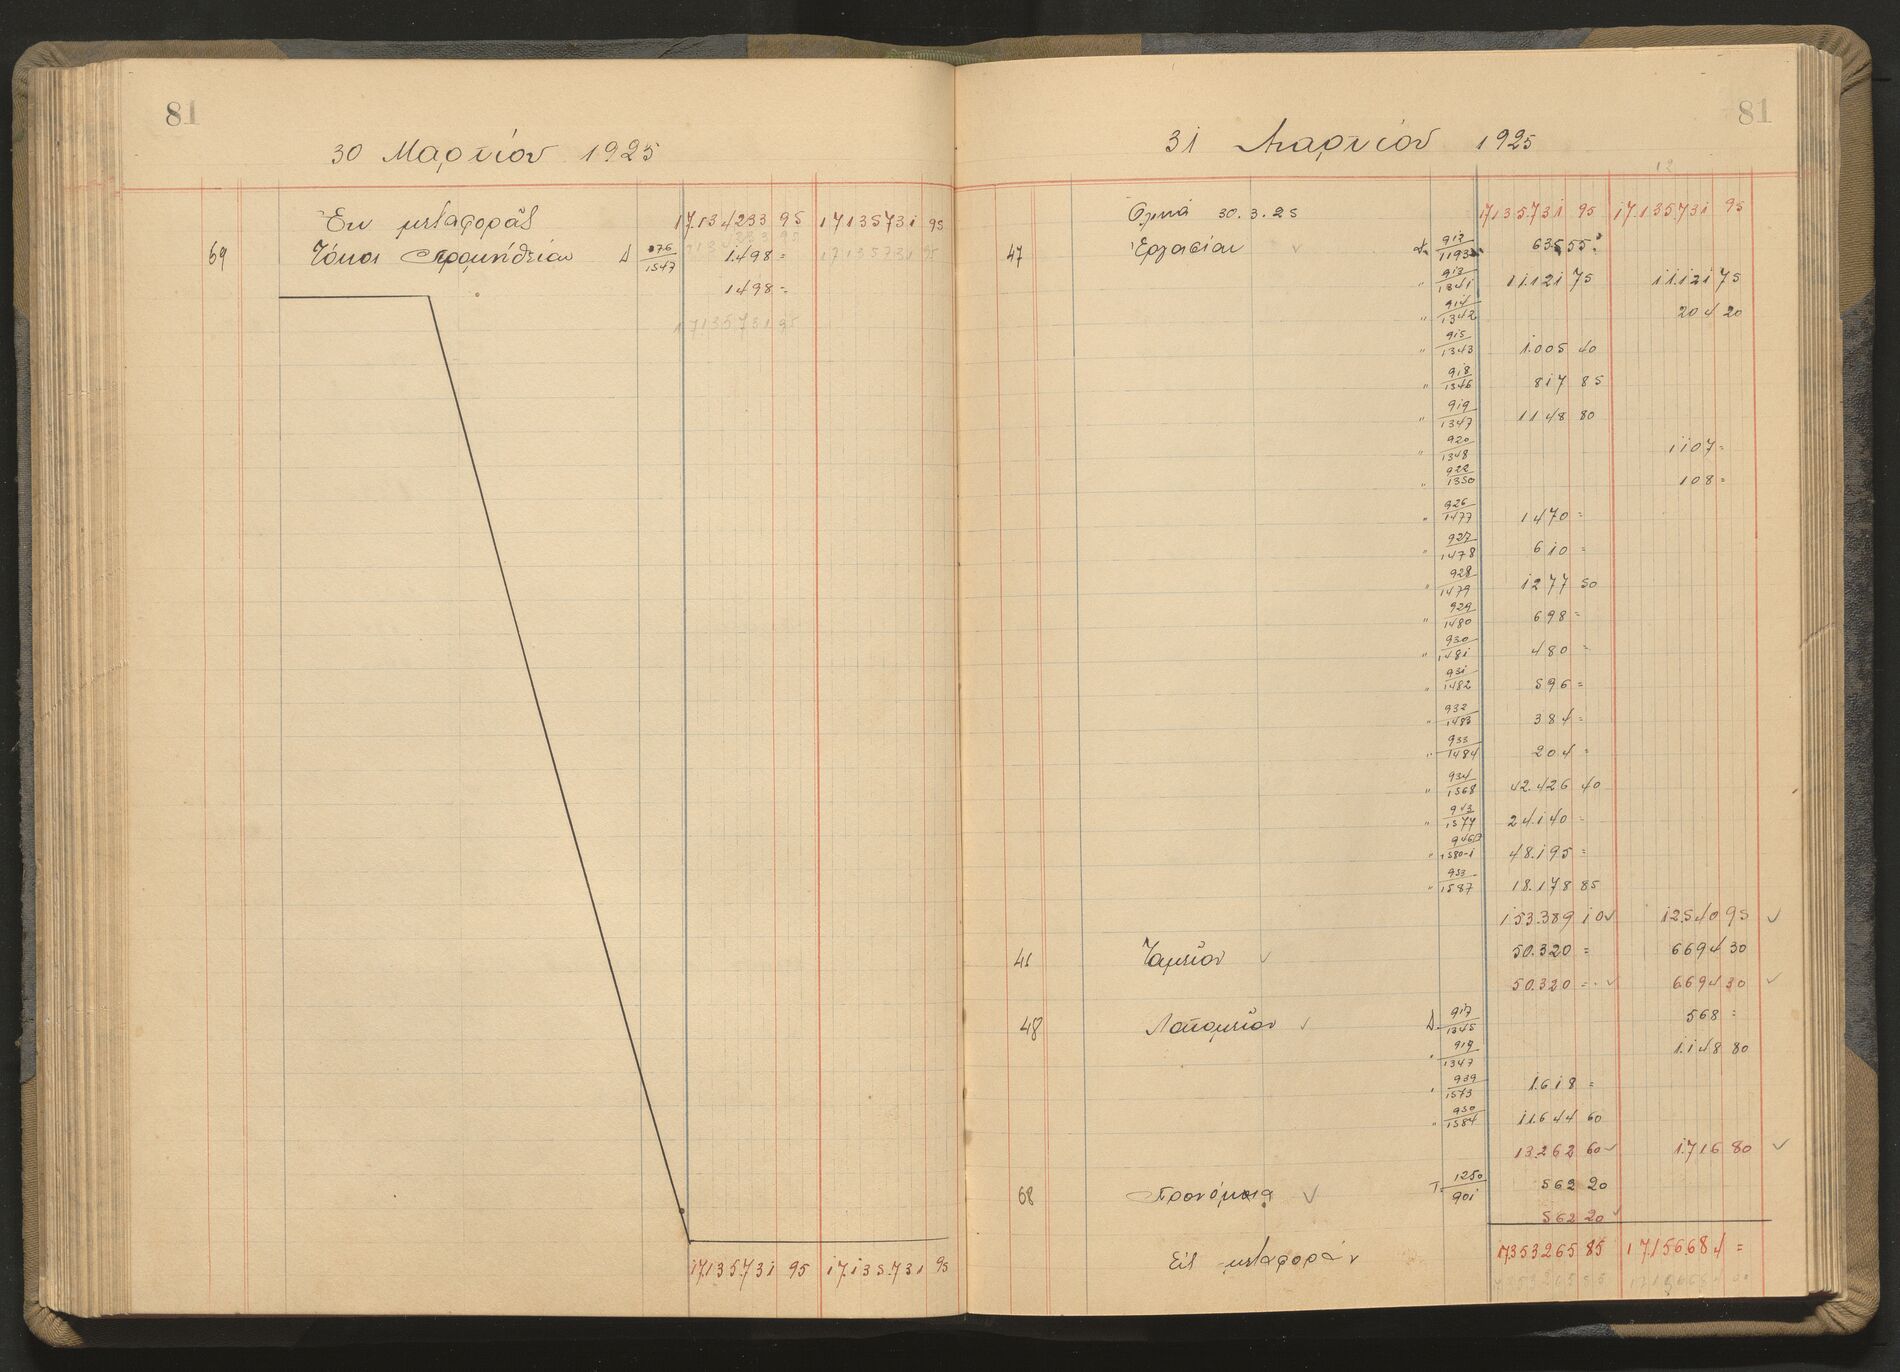 81
30 Μαρτίου 1925
Ἐκ μεταφορᾶς 17.134.233 95 17.135.731 95
69 Τόκοι προμήθειαι Δ 876/1547 1.498 =
1498 =
17135731 95
17.135.731 95 17.135.731 95
81
31 Μαρτίου 1925
12
30.3.25 17.135.731 95 17.135.731 95
47 Ἐργασίαι
" 913/1341 11.121 75 11.121 75
" 914/1342 204 20
" 915/1343 1.005 40
" 918/1346 817 85
" 919/1347 1148 80
" 920/1348 1107 =
" 922/1350 108 =
" 926/1477 1470 =
" 927/1478 610 =
" 928/1479 1277 50
" 929/1480 698 =
" 930/1481 480 =
" 931/1482 596 =
" 932/1483 384 =
" 933/1484 204 =
" 934/1568 42.426 40
" 943/1577 24.140 =
" 1580-1 48.195 =
" 953/1587 18.178 85
153.389 10 12.540 95
41 Ταμεῖον 50.320 = 6694 30
50.320 = 6694 30
48 Λατομεῖον Δ 917/1345 568 =
" 919/1347 1.148 80
" 939/1573 1.618 =
" 950/1584 11.644 60
13.262 60 1.716 80
68 Προνόμια Τ 1250/901 562 20
562 20
Εἰς μεταφοράν 17353265 85 17156684 =